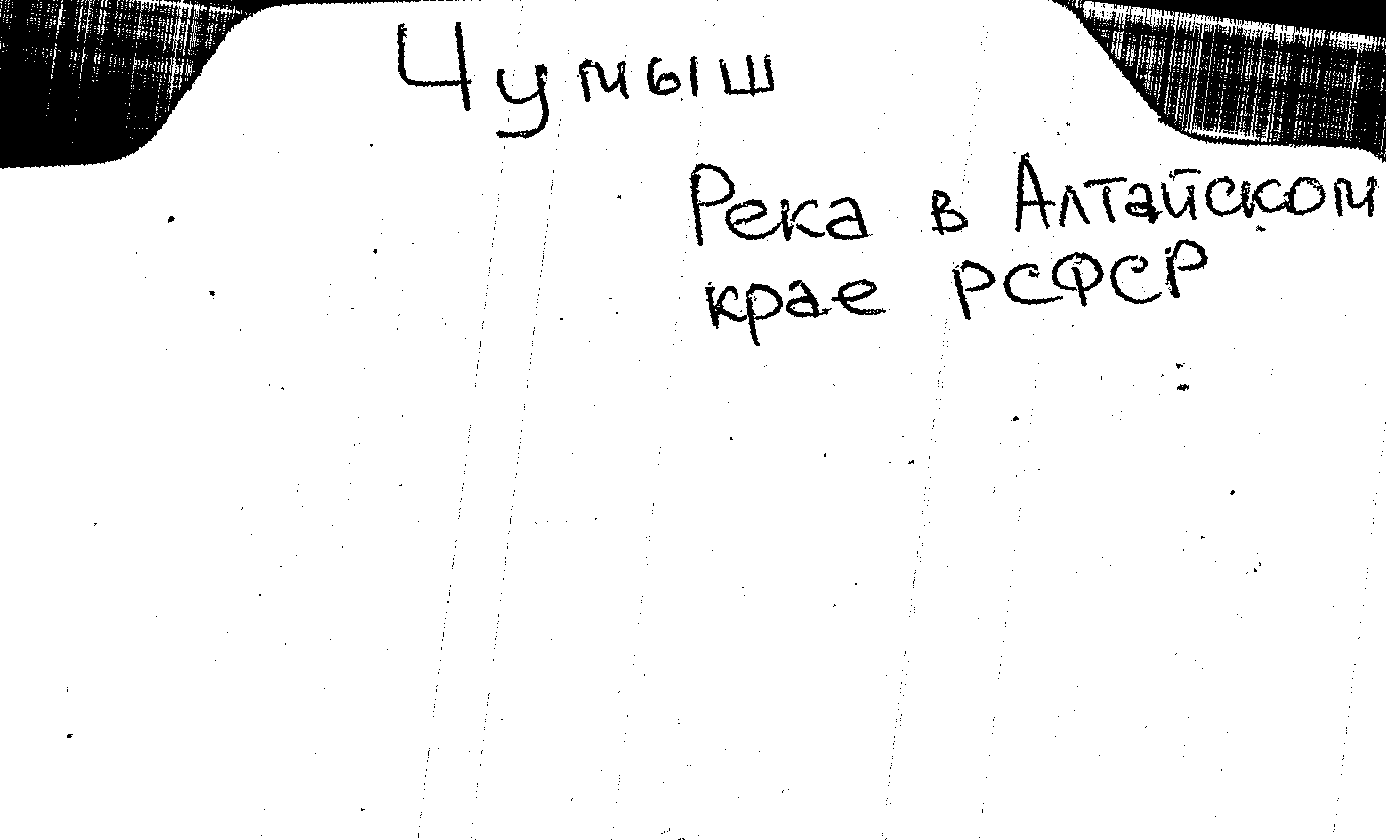 Чумыш
Река в Алтайском
крае РСФСР